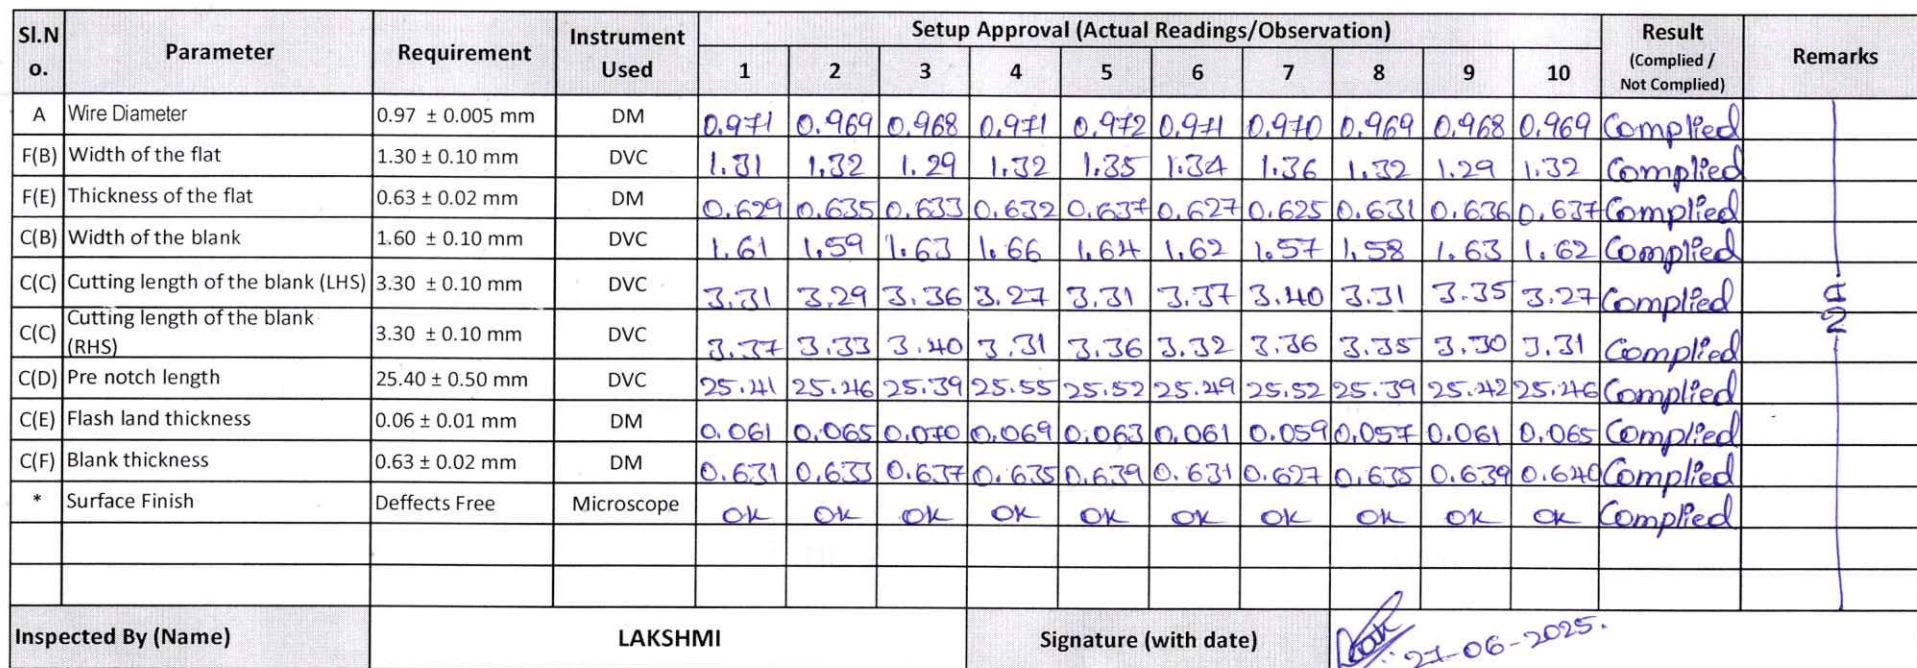 Sl.No. Parameter Requirement Instrument Used Setup Approval (Actual Readings/Observation) Result (Complied / Not Complied) Remarks
1 2 3 4 5 6 7 8 9 10
A Wire Diameter 0.97 ± 0.005 mm DM 0.971 0.969 0.968 0.971 0.972 0.971 0.970 0.969 0.968 0.969 Complied
F(B) Width of the flat 1.30 ± 0.10 mm DVC 1.31 1.32 1.29 1.32 1.35 1.34 1.36 1.32 1.29 1.32 Complied
F(E) Thickness of the flat 0.63 ± 0.02 mm DM 0.629 0.635 0.633 0.632 0.637 0.627 0.625 0.631 0.636 0.637 Complied
C(B) Width of the blank 1.60 ± 0.10 mm DVC 1.61 1.59 1.63 1.66 1.64 1.62 1.57 1.58 1.63 1.62 Complied
C(C) Cutting length of the blank (LHS) 3.30 ± 0.10 mm DVC 3.31 3.29 3.36 3.27 3.31 3.37 3.40 3.31 3.35 3.27 Complied
C(C) Cutting length of the blank (RHS) 3.30 ± 0.10 mm DVC 3.37 3.33 3.40 3.31 3.36 3.32 3.36 3.35 3.30 3.31 Complied
C(D) Pre notch length 25.40 ± 0.50 mm DVC 25.41 25.46 25.39 25.55 25.52 25.49 25.52 25.39 25.42 25.46 Complied
C(E) Flash land thickness 0.06 ± 0.01 mm DM 0.061 0.065 0.070 0.069 0.063 0.061 0.059 0.057 0.061 0.065 Complied
C(F) Blank thickness 0.63 ± 0.02 mm DM 0.631 0.633 0.637 0.635 0.639 0.631 0.627 0.635 0.639 0.640 Complied
* Surface Finish Deffects Free Microscope OK OK OK OK OK OK OK OK OK OK Complied
Inspected By (Name) LAKSHMI Signature (with date) 27-06-2025.